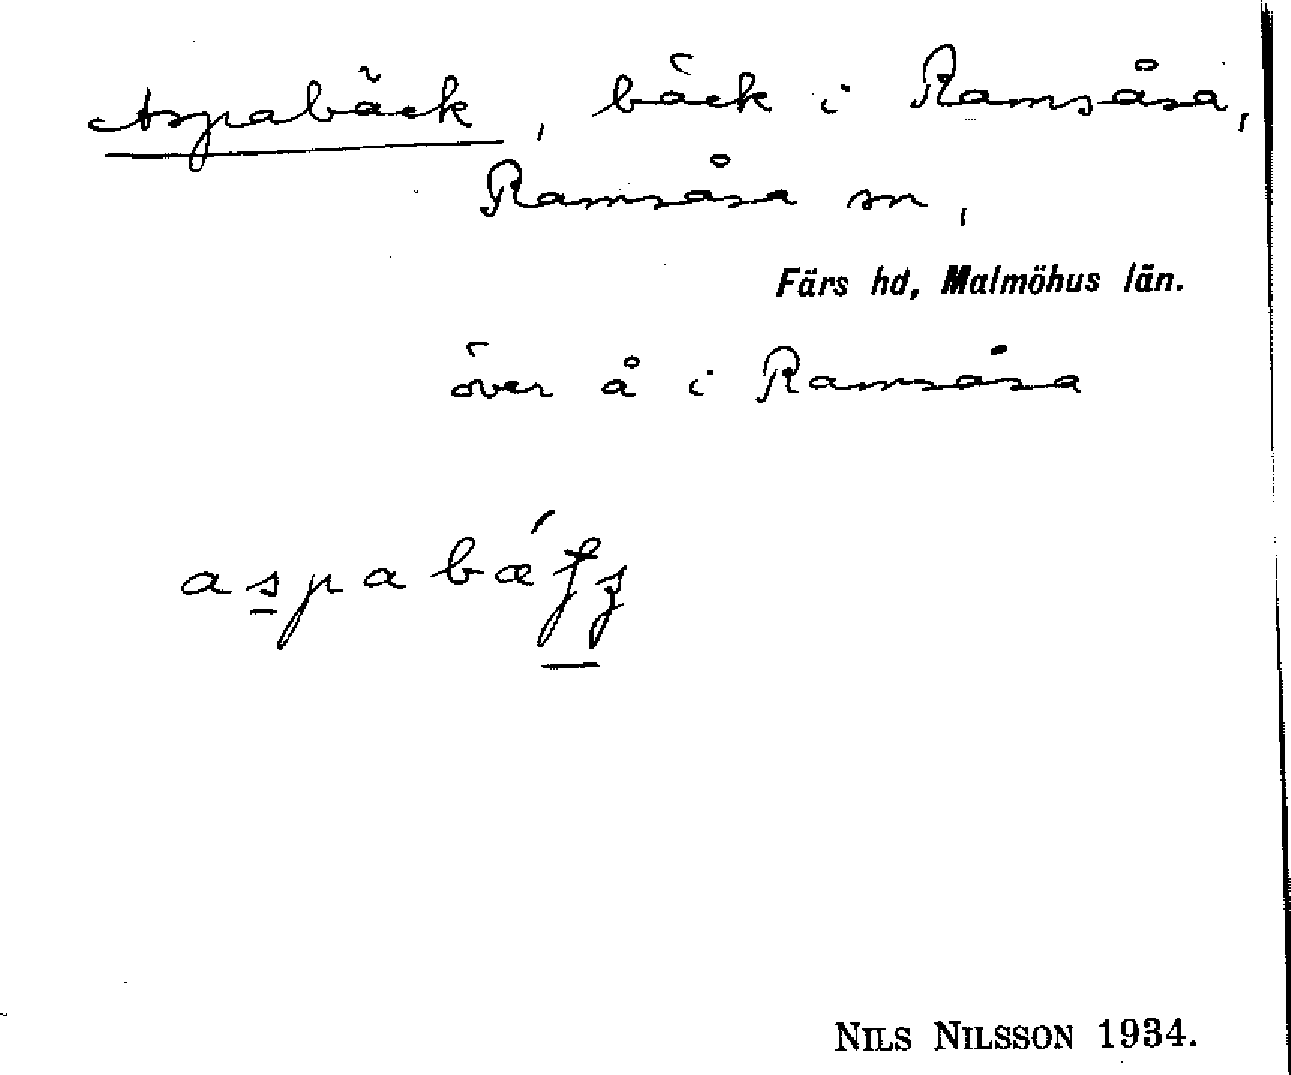 Aspabäck, bäck i Ramsåsa,
Ramsåsa sn,
Färs hd, Malmöhus län.
över å i Ramsåsa
NILS NILSSON 1934.